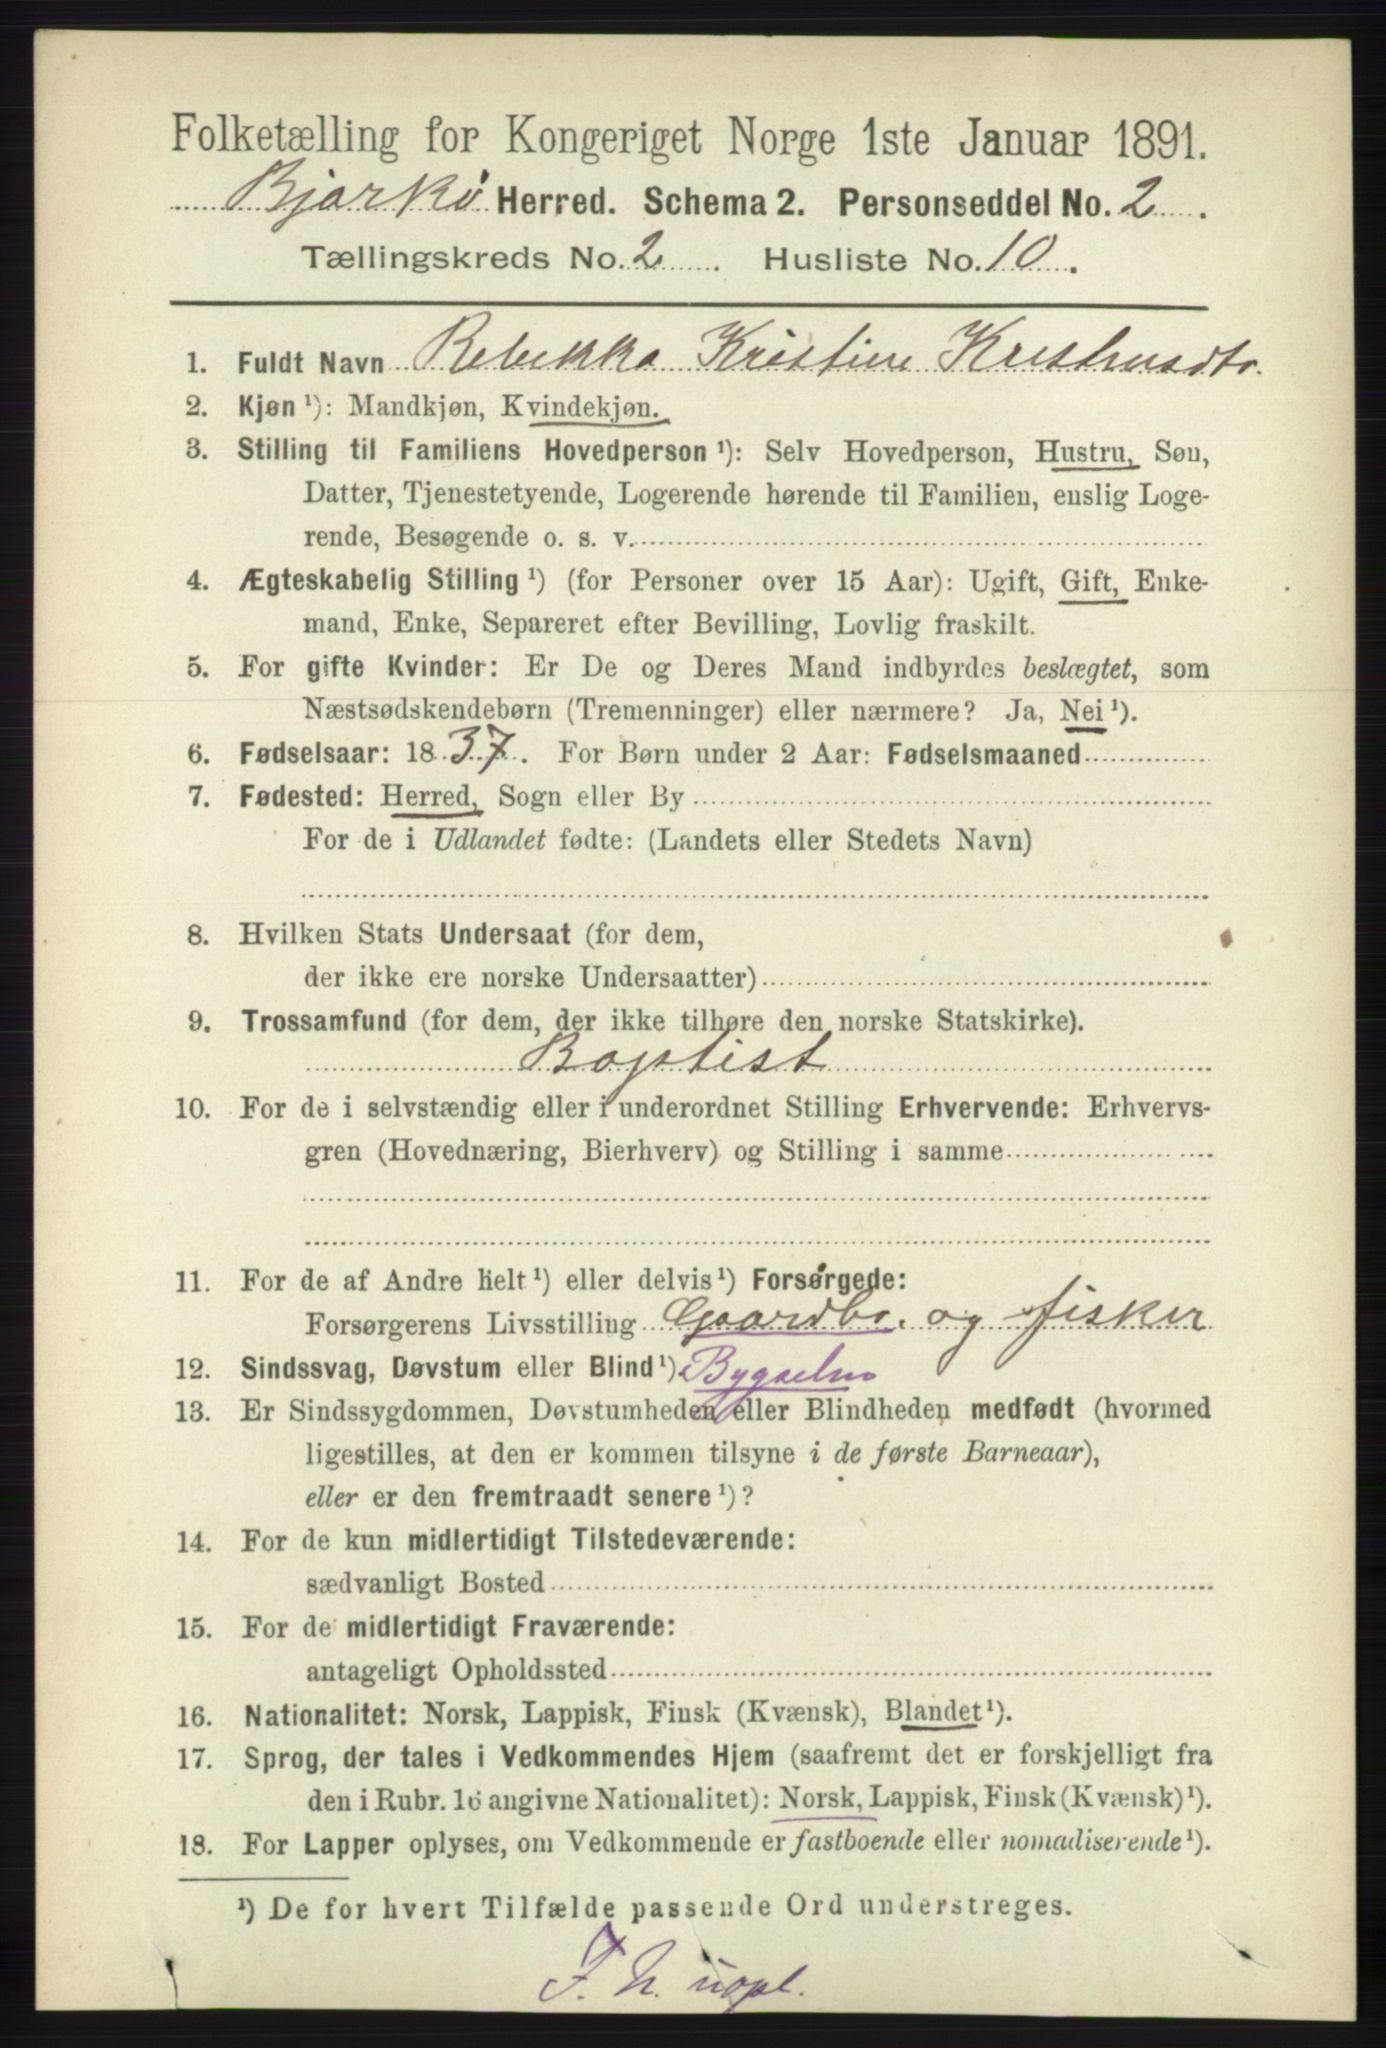 Folketælling for Kongeriget Norge 1ste Januar 1891.
Bjarkö Herred. Schema 2. Personseddel No. 2.
Tællingskreds No. 2. Husliste No. 10.
1. Fuldt Navn Rebekka Kristine
2. Kjøn ¹): Mandkjøn, Kvindekjøn.
3. Stilling til Familiens Hovedperson ¹): Selv Hovedperson, Hustru, Søn,
Datter, Tjenestetyende, Logerende hørende til Familien, enslig Loge-
rende, Besøgende o. s. v.
4. Ægteskabelig Stilling ¹) (for Personer over 15 Aar): Ugift, Gift, Enke-
mand, Enke, Separeret efter Bevilling, Lovlig fraskilt.
5. For gifte Kvinder: Er De og Deres Mand indbyrdes beslægtet, som
Næstsødskendebørn (Tremenninger) eller nærmere? Ja, Nei ¹).
6. Fødselsaar: 1837. For Børn under 2 Aar: Fødselsmaaned
7. Fødested: Herred, Sogn eller By
For de i Udlandet fødte: (Landets eller Stedets Navn)
8. Hvilken Stats Undersaat (for dem,
der ikke ere norske Undersaatter)
9. Trossamfund (for dem, der ikke tilhøre den norske Statskirke).
Baptist
10. For de i selvstændig eller i underordnet Stilling Erhvervende: Erhvervs-
gren (Hovednæring, Bierhverv) og Stilling i samme
11. For de af Andre helt ¹) eller delvis ¹) Forsørgede:
Forsørgerens Livsstilling Gaardbr. og fisker
12. Sindssvag, Døvstum eller Blind ¹).
13. Er Sindssygdommen, Døvstumheden eller Blindheden medfødt (hvormed
ligestilles, at den er kommen tilsyne i de første Barneaar),
eller er den fremtraadt senere ¹)?
14. For de kun midlertidigt Tilstedeværende:
sædvanligt Bosted
15. For de midlertidigt Fraværende:
antageligt Opholdssted
16. Nationalitet: Norsk, Lappisk, Finsk (Kvænsk), Blandet ¹).
17. Sprog, der tales i Vedkommendes Hjem (saafremt det er forskjelligt fra
den i Rubr. 16 angivne Nationalitet): Norsk, Lappisk, Finsk (Kvænsk) ¹).
18. For Lapper oplyses, om Vedkommende er fastboende eller nomadiserende ¹).
¹) De for hvert Tilfælde passende Ord understreges.
F. N. uopl.